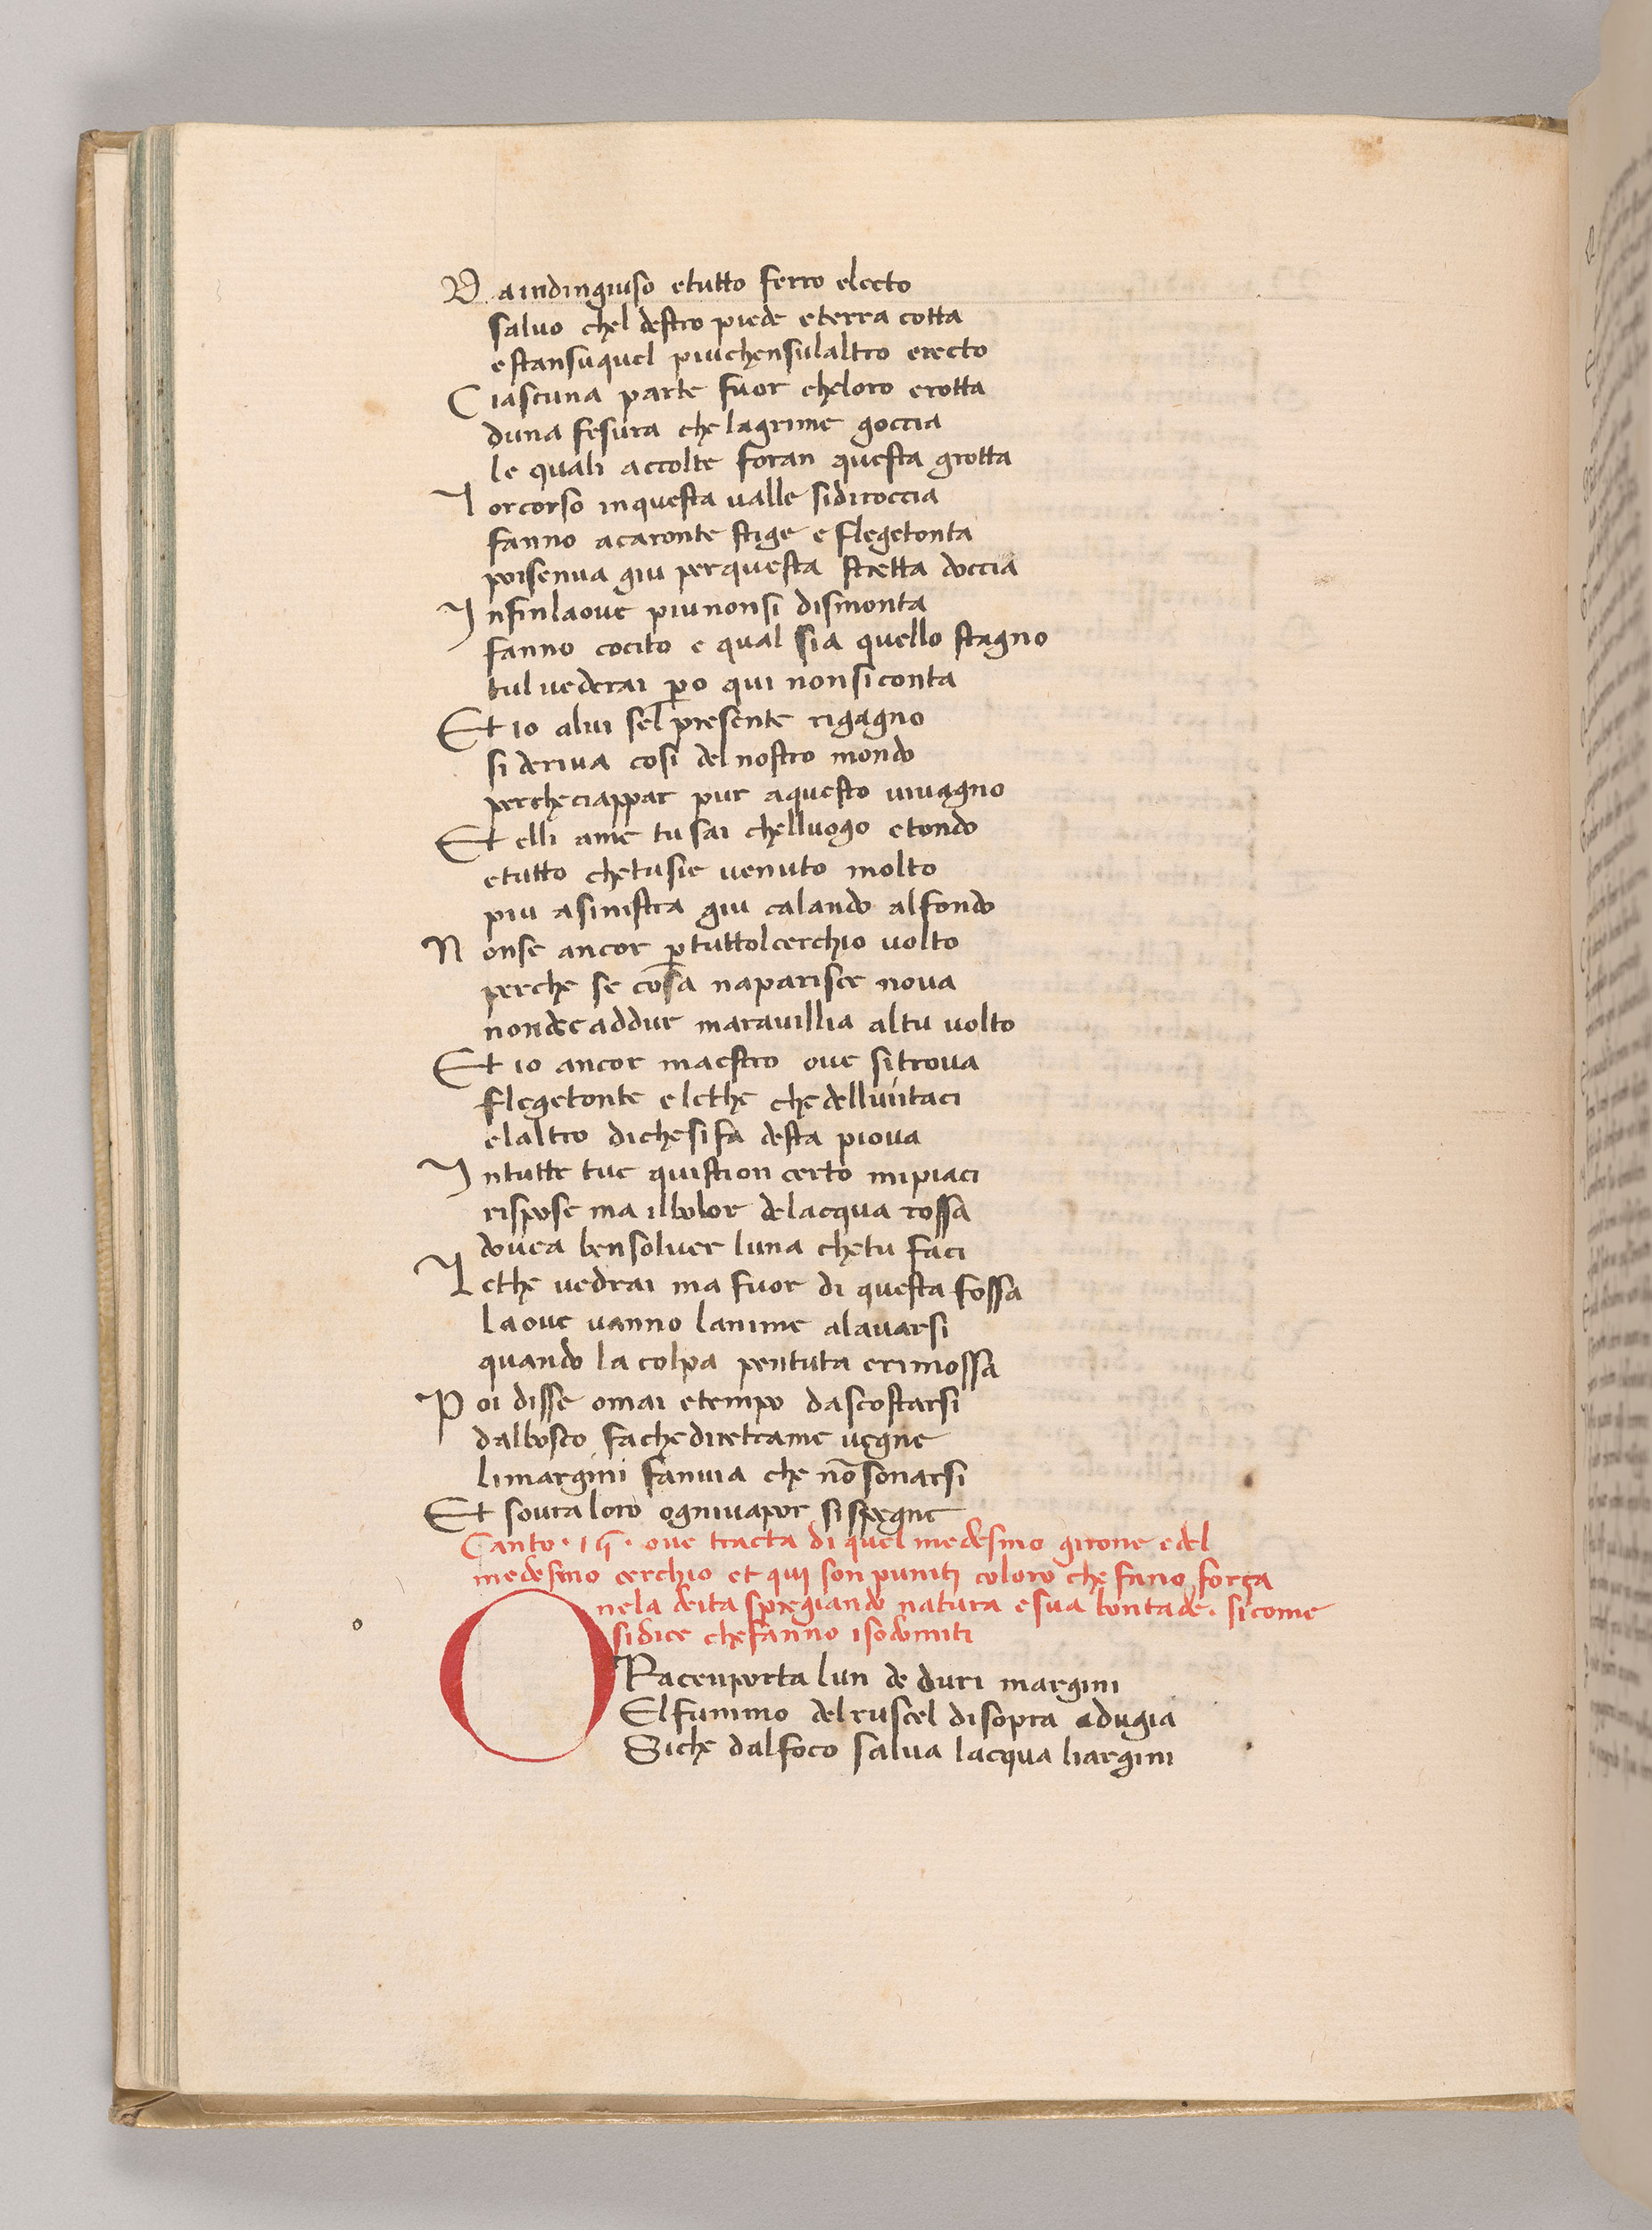 D a indinguiso etutto ferro electo
saluo chel destro piede eterra cotta
estansuquel piuchensulaltro erecto
C iascuna parte fuor cheloro erotta
duna fesura che lagrime goccia
le quali accolte foran questa grotta
l orcorso inquesta ualle sidiroccia
fanno acaronte stige e flegetonta
poisenua giu perquesta stretta doccia
I nfinlaoue piunonsi dismonta
fanno cocito e qual sia quello stagno
tul uederai ꝑo qui nonsiconta
Et io alui sel presente rigagno
si deriua cosi del nostro mondo
percheciappar pur aquesto uiuagno
Et elli ame tu sai chelluogo etondo
etutto chetusie uenuto molto
piu asinistra giu calando alfondo
N onse ancor ꝑtuttolcerchio uolto
perche se cosa naparisce noua
nondeeaddur marauillia altu uolto
Et io ancor maestro oue sitroua
flegetonte elethe chedelluntaci
elaltro dichesifa desta pioua
I ntutte tue quistion certo mipiaci
rispose ma ilbolor delacqua rossa
douea bensoluer luna chetu faci
L ethe uedrai ma fuor di questa fossa
laoue uanno lanime alauarsi
quando la colpa pentuta erimossa
P oi disse omai etempo dascostarsi
dalbosco fachediretrame uegne
limargini fanuia che nōsonarsi
Et soura loro ogniuapor sispegne
Canto · 15 · oue tracta di quel medesmo girone e del
medesmo cerchio et qui son puniti coloro che fano força
nela deita spregiando natura e sua bontade. sicome
sidice chefanno isodomiti
ORacenporta lun de duri margini
Elfummo delruscel disopra adugia
Siche dalfoco salua lacqua liargini